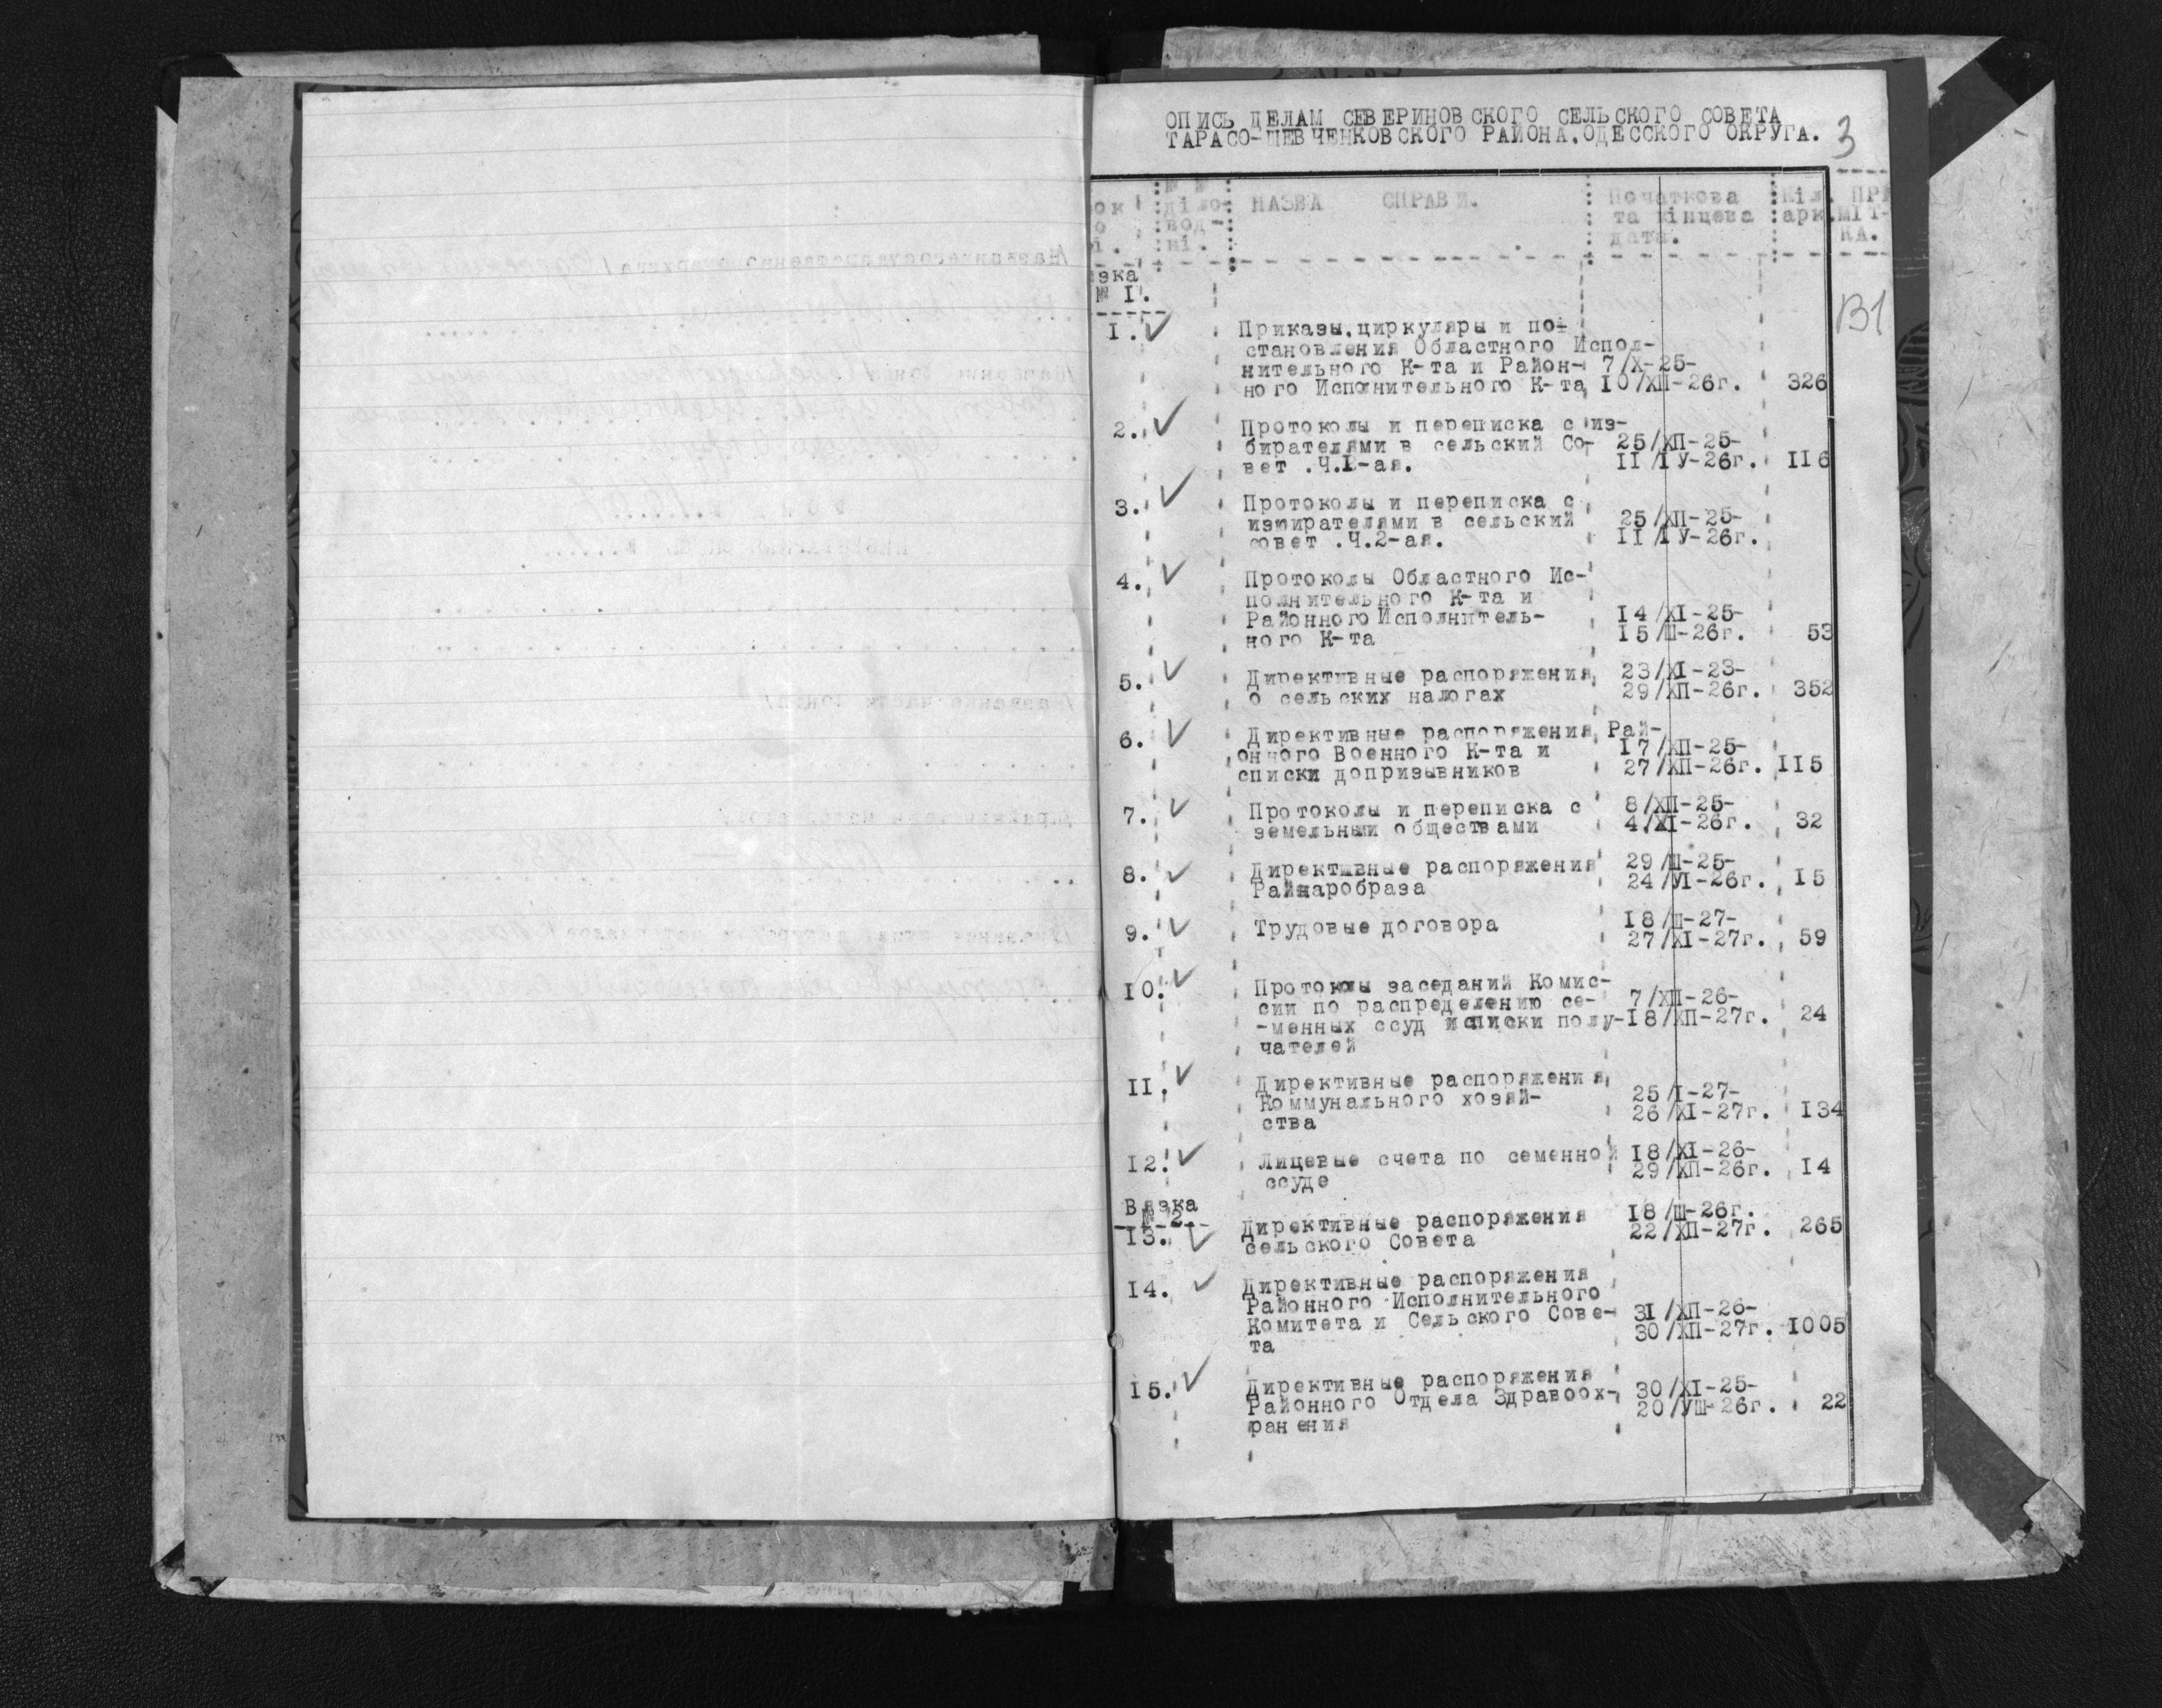 ОПИСЬ ДЕЛАМ СЕВЕРИНОВСКОГО СЕЛЬСКОГО СОВЕТА
ТАРАСО-ШЕВЧЕНКОВСКОГО РАЙОНА.ОДЕССКОГО ОКРУГА.
3
№ №
діло-
вод-
ні.
НАЗВА СПРАВИ.
Початкова
та кінцева
дата.
Кіл.
арк.
ПРИ
МІТ-
КА.
В1
№ 1.
1. Приказы,циркуляры и по-
становления Областного Испол-
нительного К-та и Район- 7/Х-25-
ного Исполнительного К-та 10/ХП-26г. 326
2. Протоколы и переписка с из-
бирателями в сельский Со- 25/ХП-25-
вет .Ч.I-ая. II/IУ-26г. II6
3. Протоколы и переписка с
избирателями в сельский 25/ХП-25-
совет .Ч.2-ая. II/IУ-26г.
4. Протоколы Областного Ис-
полнительного К-та и
Районного Исполнитель- I4/ХI-25-
ного К-та I5/Ш-26г. 53
5. Директивные распоряжения 23/ХI-23-
о сельских налогах 29/ХП-26г. 352
6. Директивные распоряжения Рай-
онного Военного К-та и I7/ХП-25-
списки допризывников 27/ХП-26г. II5
7. Протоколы и переписка с 8/ХП-25-
земельными обществами 4/ХI-26г. 32
8. Директивные распоряжения 29/Ш-25-
Райнаробраза 24/УI-26г. I5
9. Трудовые договора I8/Ш-27-
27/ХI-27г. 59
I0. Протоколы заседаний Комис-
сии по распределению се- 7/ХП-26-
-менных ссуд и списки полу- I8/ХП-27г. 24
чателей
II. Директивные распоряжения
Коммунального хозяй- 25/I-27-
ства 26/ХI-27г. I34
I2. Лицевые счета по семенной I8/ХI-26-
ссуде 29/ХП-26г. I4
Вязка
№ 2.
I3. Директивные распоряжения I8/Ш-26г.
сельского Совета 22/ХП-27г. 265
I4. Директивные распоряжения
Районного Исполнительного
Комитета и Сельского Сове- 31/ХП-26-
та 30/ХП-27г. I005
I5. Директивные распоряжения
Районного Отдела Здравоох- 30/ХI-25-
ранения 20/УШ-26г. 22